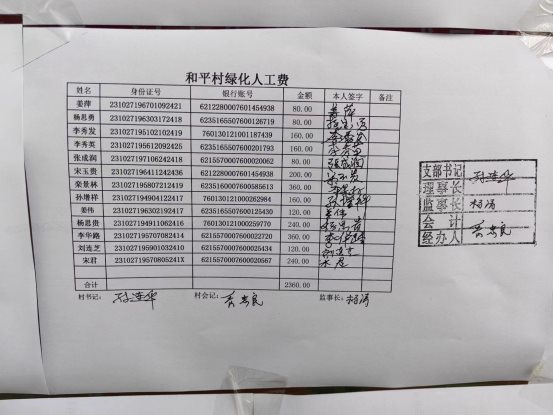 和平村绿化人工费
姓名 身份证号 银行账号 金额 本人签字 备注
姜萍 231027196701092421 6212280007601454938 80.00 姜萍
杨思勇 231027196303172418 6235165507600126719 80.00
李秀发 231027195102102419 760130121001187439 160.00 李秀发
李秀英 231027195612092425 6235165507600201793 160.00 李秀英
张成润 231027197106242418 6215570007600020062 80.00 张成润
宋玉贵 231027196411242436 6212280007601454938 200.00 宋玉贵
栾景林 231027195807212419 6235160007600585613 360.00
孙增祥 231027194904122417 760130121000262984 160.00 孙增祥
姜伟 231027196302192417 6235165507600125430 120.00 姜伟
杨思贵 231027194911062416 760130121000259770 240.00 杨思贵
李华路 231027195707082414 6215570007600022720 360.00 李华路
刘连芝 231027195901032410 6215570007600025434 120.00
宋君 23102719570805241X 6215570007600020567 240.00 宋君
合计 2360.00
村书记: 孙连华 村会记: 监事长: 杨涛
支部书记 孙连华
理事长
监事长 杨涛
会计
经办人